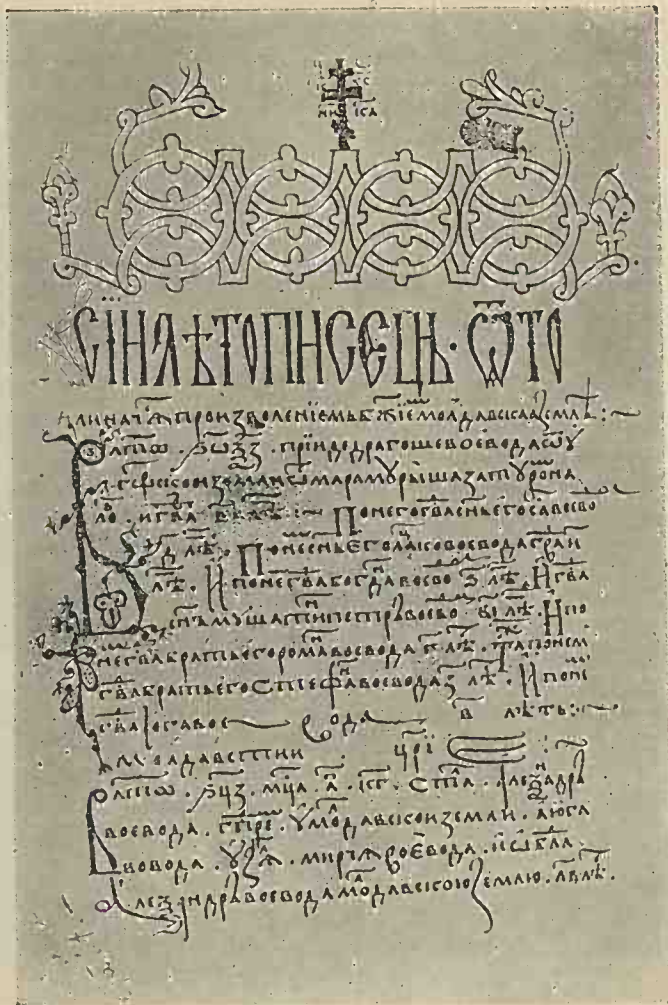 ІС ХС
НИ КА
СІИ ЛѢТОПИСЕЦЬ · ѾТО
ли начѧ произволенїемь бжїемь молдавскаа землѣ :~
Влѣтѡ . ҂ѕѡѯз . прїиде драгошь воевода ѿ у
гръскои земли ѿ марамориша за туромь на
ло . и гва в лѣ :~ По нем гва снь его сас воево
д лѣ . По нем снь его лацко воевода гва и
лѣ . И по нем гва богдань воево ѕ лѣ . И гва
снъ мушатин петрь воево . ві лѣ . И по
нем гва братъ его роман воевода г лѣ . та по нем
гва братъ его Стефан воевода з лѣ . И по нем
гва юга вое вода в лѣть :~
молдавстїи црїе :~
Влѣтѡ . ҂ѕцз . мца . ап . кг . ста . леѯандрь
воевода . гпрь . Умолдавскои земли . а юга
воевода . Уѧ . мирчѧ воевода . и бы
леѯандрь воевода молдавскою землю . лв лѣ .